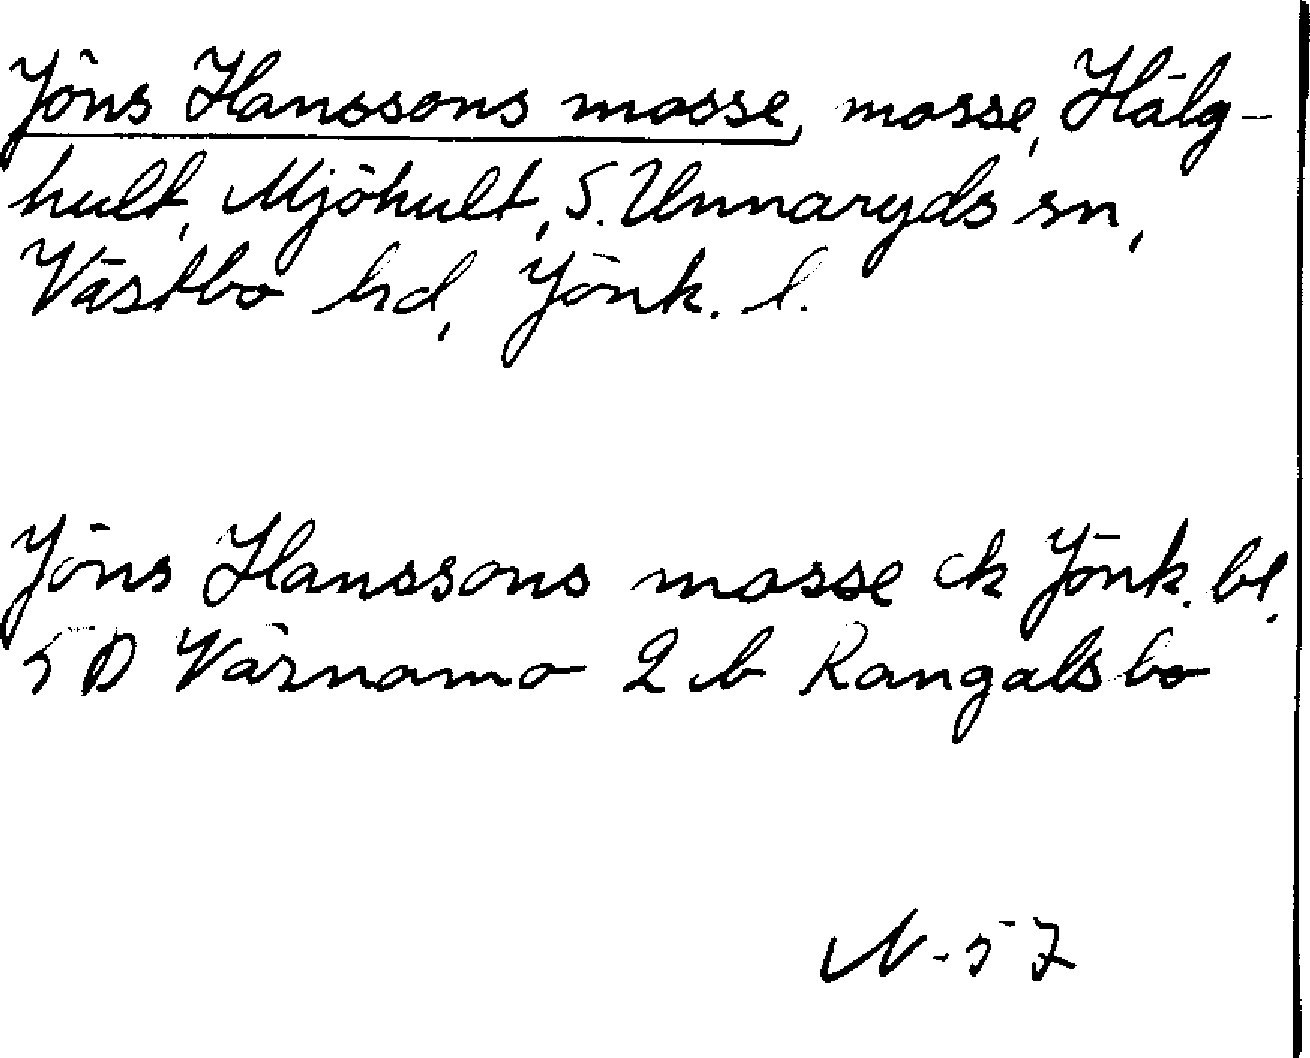 Jöns Hanssons mosse, mosse, Hälg-
hult, Mjöhult, S. Unnaryds sn,
Västbo hd, Jönk. l.
Jöns Hanssons mosse ek Jönk. bl.
5D Värnamo 2 b Rangalsbo
N-57